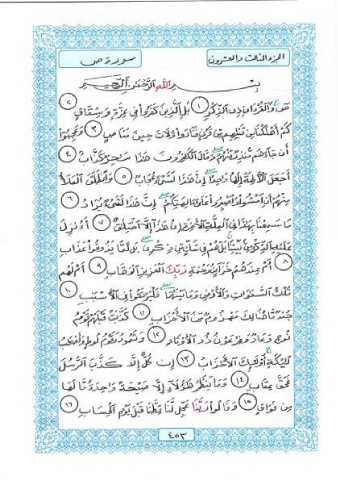 الجزء الثالث والعشرون
سورة ص
بِسْمِ اللَّهِ الرَّحْمَٰنِ الرَّحِيمِ
صٓ وَالْقُرْءَانِ ذِي الذِّكْرِ ١ بَلِ الَّذِينَ كَفَرُوا فِي عِزَّةٍ وَشِقَاقٍ ٢
كَمْ أَهْلَكْنَا مِن قَبْلِهِم مِّن قَرْنٍ فَنَادَوا وَّلَاتَ حِينَ مَنَاصٍ ٣ وَعَجِبُوا
أَن جَاءَهُم مُّنذِرٌ مِّنْهُمْ وَقَالَ الْكَٰفِرُونَ هَٰذَا سَٰحِرٌ كَذَّابٌ ٤
أَجَعَلَ الْآلِهَةَ إِلَٰهًا وَٰحِدًا إِنَّ هَٰذَا لَشَيْءٌ عُجَابٌ ٥ وَانطَلَقَ الْمَلَأُ
مِنْهُمْ أَنِ امْشُوا وَاصْبِرُوا عَلَىٰ ءَالِهَتِكُمْ إِنَّ هَٰذَا لَشَيْءٌ يُرَادُ ٦
مَا سَمِعْنَا بِهَٰذَا فِي الْمِلَّةِ الْآخِرَةِ إِنْ هَٰذَا إِلَّا اخْتِلَٰقٌ ٧ أَءُنزِلَ
عَلَيْهِ الذِّكْرُ مِن بَيْنِنَا بَلْ هُمْ فِي شَكٍّ مِّن ذِكْرِي بَل لَّمَّا يَذُوقُوا عَذَابِ
٨ أَمْ عِندَهُمْ خَزَائِنُ رَحْمَةِ رَبِّكَ الْعَزِيزِ الْوَهَّابِ ٩ أَمْ لَهُم
مُّلْكُ السَّمَٰوَٰتِ وَالْأَرْضِ وَمَا بَيْنَهُمَا فَلْيَرْتَقُوا فِي الْأَسْبَٰبِ ١٠
جُندٌ مَّا هُنَالِكَ مَهْزُومٌ مِّنَ الْأَحْزَابِ ١١ كَذَّبَتْ قَبْلَهُمْ قَوْمُ
نُوحٍ وَعَادٌ وَفِرْعَوْنُ ذُو الْأَوْتَادِ ١٢ وَثَمُودُ وَقَوْمُ لُوطٍ وَأَصْحَٰبُ
لْئَيْكَةِ أُولَٰئِكَ الْأَحْزَابُ ١٣ إِن كُلٌّ إِلَّا كَذَّبَ الرُّسُلَ
فَحَقَّ عِقَابِ ١٤ وَمَا يَنظُرُ هَٰؤُلَاءِ إِلَّا صَيْحَةً وَٰحِدَةً مَّا لَهَا
مِن فَوَاقٍ ١٥ وَقَالُوا رَبَّنَا عَجِّل لَّنَا قِطَّنَا قَبْلَ يَوْمِ الْحِسَابِ ١٦
٤٥٣